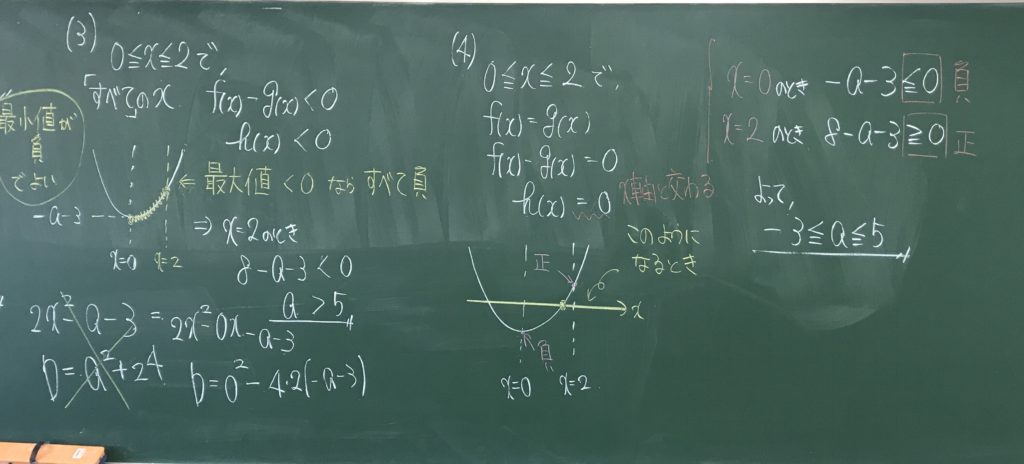 (3)
0≦x≦2で、
「すべてのx」 f(x)-g(x)<0
h(x)<0
最小値が
負
でよい
⇐ 最大値<0 なら すべて負
-a-3
⇒ x=2のとき
x=0 x=2
8-a-3<0
a>5
2x²-a-3 = 2x²-0x-a-3
D=a²+24 D=0²-4・2(-a-3)
(4)
0≦x≦2で、
f(x)=g(x)
f(x)-g(x)=0
h(x)=0 x軸に交わる
このように
なるとき
正
x
負
x=0 x=2
x=0のとき -a-3≦0 負
x=2のとき 8-a-3≧0 正
よって、
-3≦a≦5